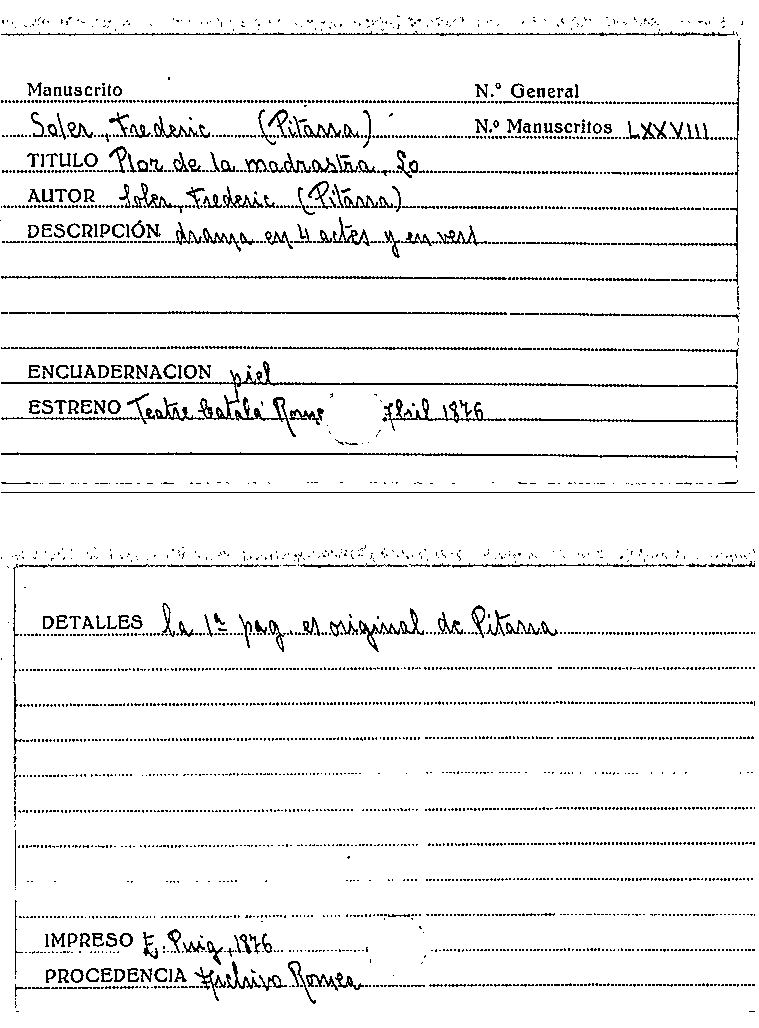 Manuscrito N.º General
Soler, Frederic (Pitarra) N.º Manuscritos LXXVIII
TITULO Plor de la madrastra, Lo
AUTOR Soler, Frederic (Pitarra)
DESCRIPCIÓN drama en 4 actes y en vers
ENCUADERNACION piel
ESTRENO Teatre Català Romea Abril 1876
DETALLES la 1ª pag. es original de Pitarra
IMPRESO E. Puig, 1876
PROCEDENCIA Archivo Romea